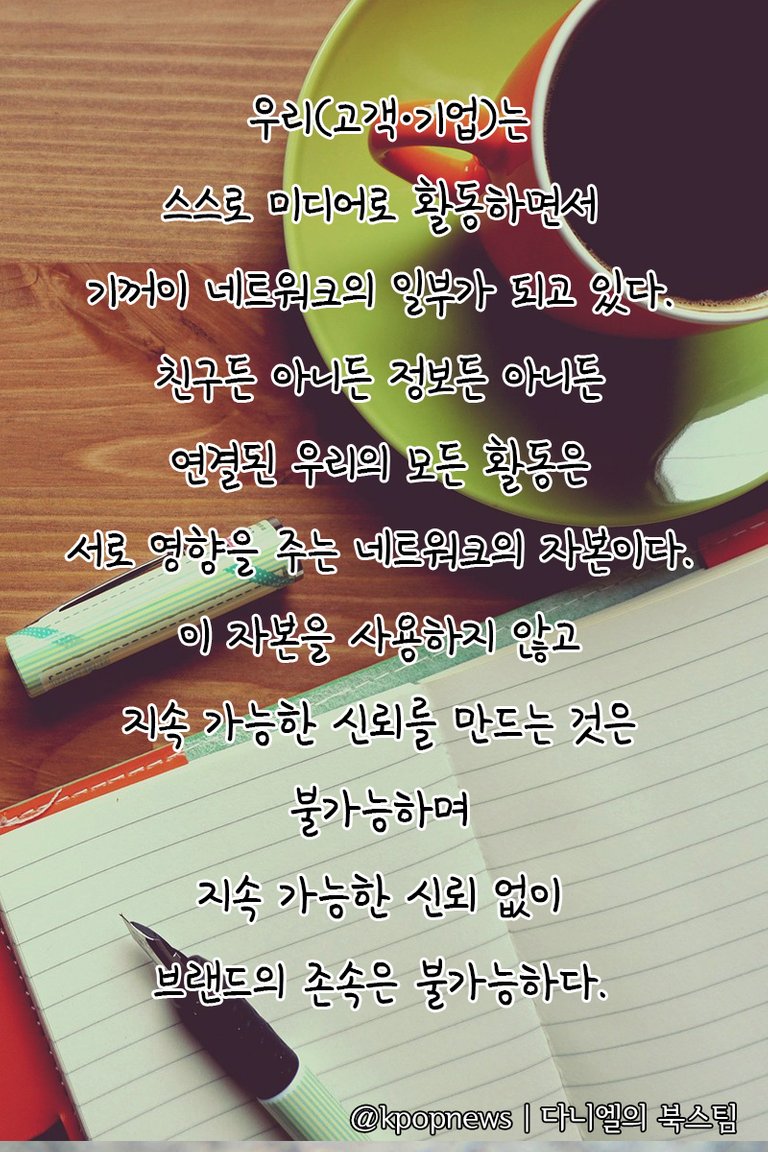 우리(고객·기업)는
스스로 미디어로 활동하면서
기꺼이 네트워크의 일부가 되고 있다.
친구든 아니든 정보든 아니든
연결된 우리의 모든 활동은
서로 영향을 주는 네트워크의 자본이다.
이 자본을 사용하지 않고
지속 가능한 신뢰를 만드는 것은
불가능하며
지속 가능한 신뢰 없이
브랜드의 존속은 불가능하다.
@kpopnews | 다니엘의 북스팀